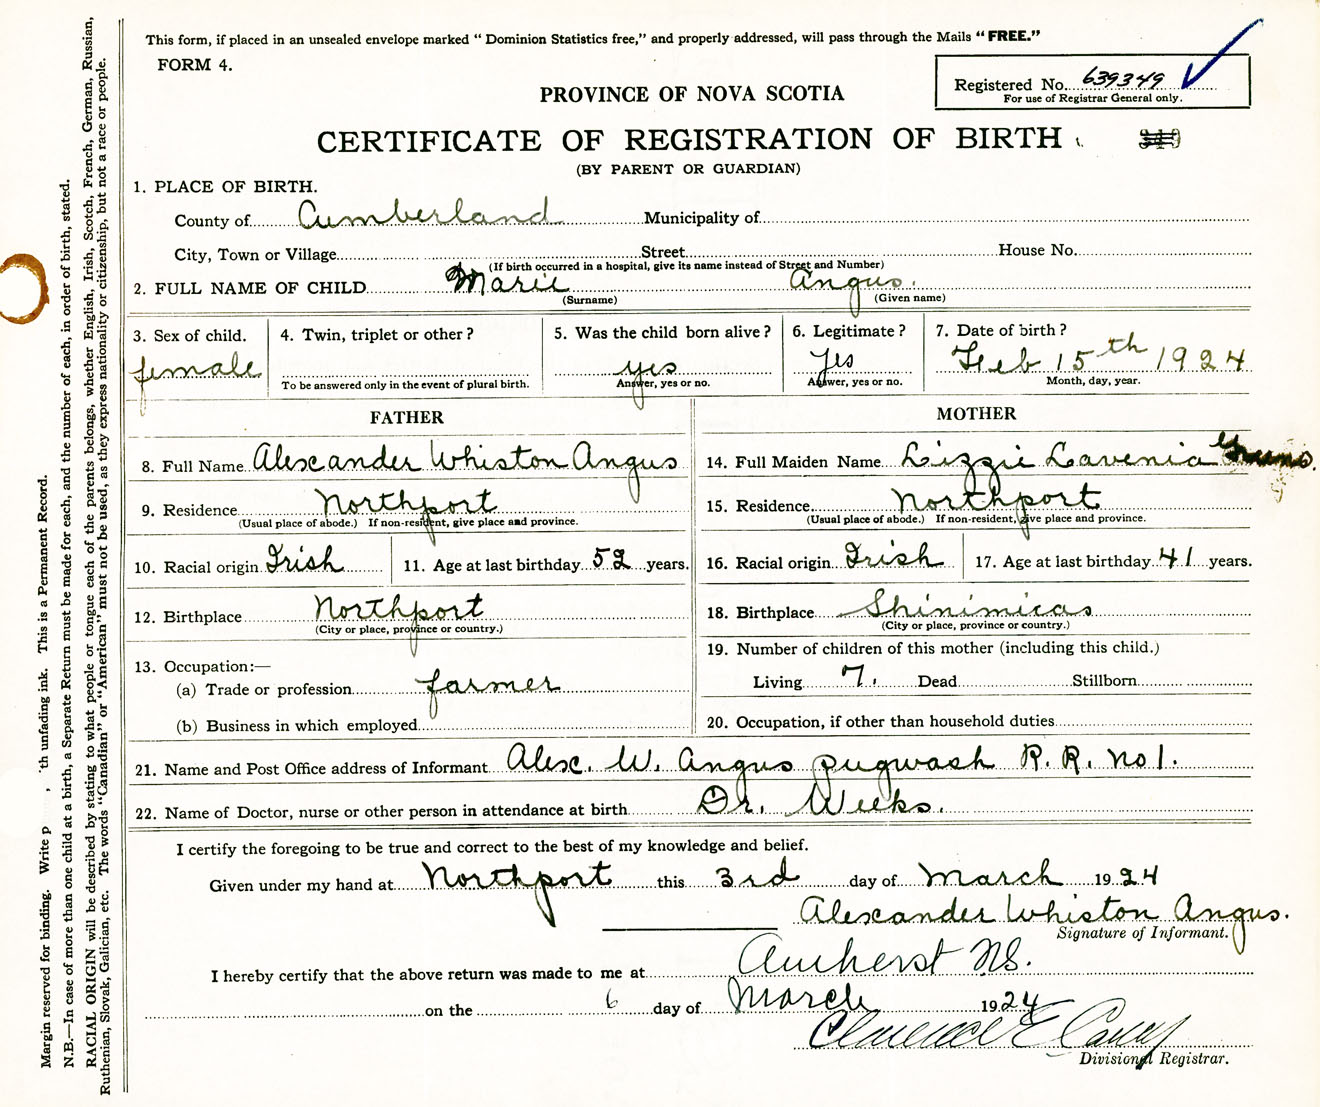 This form, if placed in an unsealed envelope marked "Dominion Statistics free," and properly addressed, will pass through the Mails "FREE."
FORM 4.
Registered No. 639349
For use of Registrar General only.
PROVINCE OF NOVA SCOTIA
CERTIFICATE OF REGISTRATION OF BIRTH
(BY PARENT OR GUARDIAN)
1. PLACE OF BIRTH.
County of Cumberland Municipality of
City, Town or Village Street House No.
(If birth occurred in a hospital, give its name instead of Street and Number)
2. FULL NAME OF CHILD Marie Angus.
(Surname) (Given name)
3. Sex of child. 4. Twin, triplet or other? 5. Was the child born alive? 6. Legitimate? 7. Date of birth?
female yes yes Feb 15th 1924
To be answered only in the event of plural birth. Answer, yes or no. Answer, yes or no. Month, day, year.
FATHER
8. Full Name Alexander Whiston Angus
9. Residence Northport
(Usual place of abode.) If non-resident, give place and province.
10. Racial origin Irish 11. Age at last birthday 52 years.
12. Birthplace Northport
(City or place, province or country.)
13. Occupation:—
(a) Trade or profession farmer
(b) Business in which employed
MOTHER
14. Full Maiden Name Lizzie Lavenia
15. Residence Northport
(Usual place of abode.) If non-resident, give place and province.
16. Racial origin Irish 17. Age at last birthday 41 years.
18. Birthplace Shinimicas
(City or place, province or country.)
19. Number of children of this mother (including this child.)
Living 7. Dead Stillborn
20. Occupation, if other than household duties
21. Name and Post Office address of Informant Alex. W. Angus pugwash R. R. no 1.
22. Name of Doctor, nurse or other person in attendance at birth Dr. Weeks.
I certify the foregoing to be true and correct to the best of my knowledge and belief.
Given under my hand at Northport this 3rd day of March 1924
Alexander Whiston Angus.
Signature of Informant.
I hereby certify that the above return was made to me at Amherst N.S.
on the 6 day of March 1924
Clarence E
Divisional Registrar.
Margin reserved for binding. Write p th unfading ink. This is a Permanent Record.
N.B.—In case of more than one child at a birth, a Separate Return must be made for each, and the number of each, in order of birth, stated.
RACIAL ORIGIN will be described by stating to what people or tongue each of the parents belongs, whether English, Irish, Scotch, French, German, Russian,
Ruthenian, Slovak, Galician, etc. The words "Canadian" or "American" must not be used, as they express nationality or citizenship, but not a race or people.